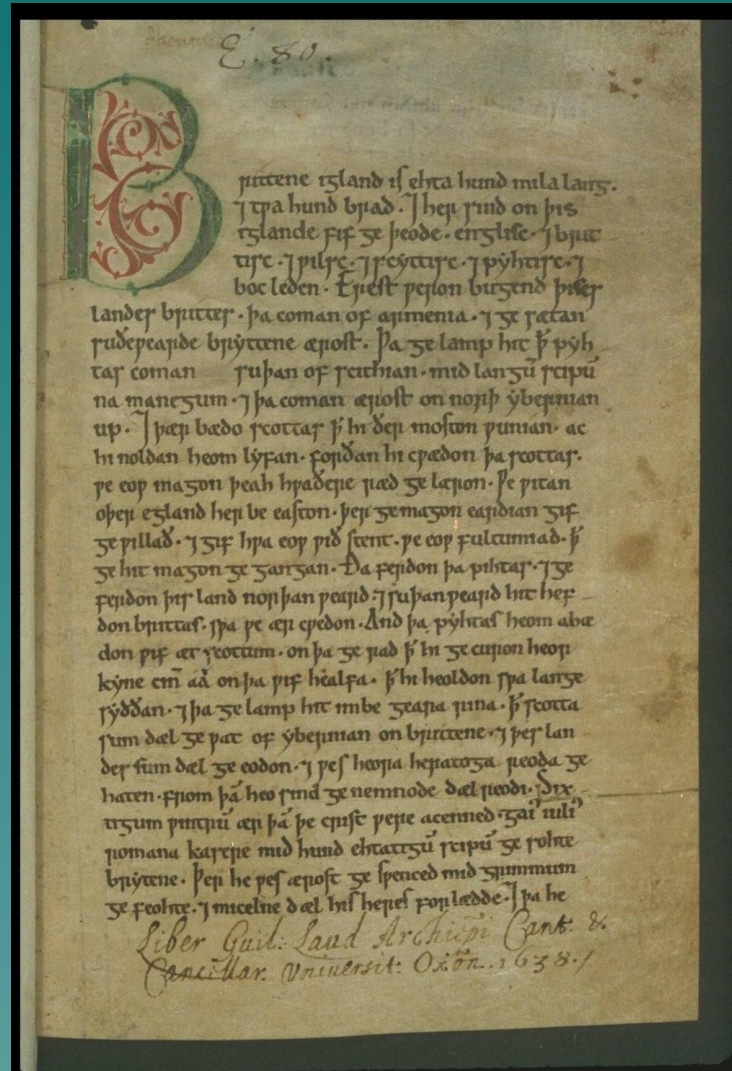 E. 80.
B
rittene igland is ehta hund mila lang.
⁊ tƿa hund brad. ⁊ her sind on þis
iglande fif ge þeode. englisc. ⁊ brit
tisc. ⁊ ƿilsc. ⁊ scyttisc. ⁊ pyhtisc. ⁊
boc leden. Erest ƿeron bugend þises
landes brittes. þa coman of armenia. ⁊ ge sætan
suðeƿearde bryttene ærost. Þa ge lamp hit ꝥ pyh
tas coman suþan of scithian. mid langū scipū
na manegum. ⁊ þa coman ærost on norþ ybernian
up. ⁊ þær bædo scottas ꝥ hi ðer moston ƿunian. ac
hi noldan heom lyfan. forðan hi cƿædon þa scottas.
ƿe eoƿ magon þeah hƿaðere ræd ge læron. Ƿe ƿitan
oþer egland her be easton. þer ge magon eardian gif
ge ƿillað. ⁊ gif hƿa eoƿ ƿið stent. ƿe eoƿ fultumiad. ꝥ
ge hit magon ge gangan. Ða ferdon þa pihtas. ⁊ ge
ferdon þis land norþan ƿeard. ⁊ suþan ƿeard hit hef
don brittas. sƿa ƿe ær cƿedon. And þa pyhtas heom abæ
don ƿif æt scottum. on þa ge rad ꝥ hi ge curon heor
kyne cīn aā on þa ƿif healfa. ꝥ hi heoldon sƿa lange
syððan. ⁊ þa ge lamp hit imbe geara rina. ꝥ scotta
sum dæl ge ƿat of ybernian on brittene. ⁊ þes lan
des sum dæl ge eodon. ⁊ ƿes heora heratoga reoda ge
haten. from þā heo sind ge nemnode dæl reodi. Six
tigum ƿintrū ær þā þe crist ƿere acenned. gaiꝰ iuliꝰ
romana kasere mid hund ehtatigū scipū ge sohte
brytene. Þer he ƿes ærost ge sƿenced mid grimmum
ge feohte. ⁊ micelne dæl his heres forlædde. ⁊ þa he
Liber Guil: Laud Archiēpi Cant: &
Cancillar. Vniuersit: Oxōn. 1638./